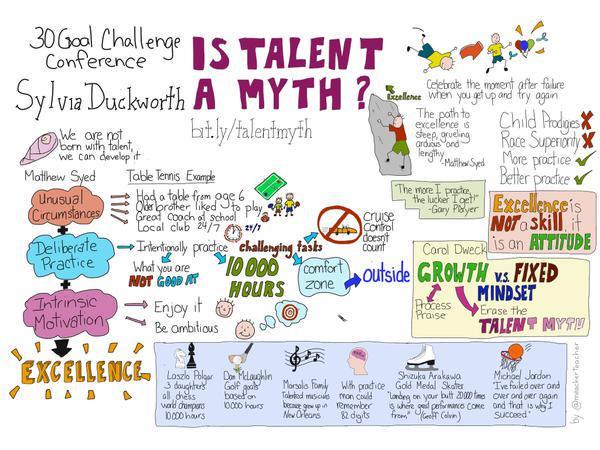 30 Goal Challenge
Conference
Sylvia Duckworth
IS TALENT
A MYTH?
bit.ly/talentmyth
We are not
born with talent,
we can develop it
Excellence
The path to
excellence is
steep, grueling
arduous and
lengthy
-Matthew Syed
Celebrate the moment after failure
when you get up and try again
Child Prodigies
Race Superiority
More practice
Better practice
Matthew Syed
Table Tennis Example
Unusual
Circumstances
Had a table from age 6
Older brother liked to play
Great coach at school
Local club 24/7
24/7
"The more I practice,
the luckier I get!"
-Gary Player
Excellence is
NOT a skill, it
is an ATTITUDE
Deliberate
Practice
Intentionally practice
What you are
NOT GOOD AT
challenging tasks
10 000
HOURS
cruise
control
doesn't
count
comfort
zone
outside
Carol Dweck
GROWTH v.s. FIXED
MINDSET
Process
Praise
Erase the
TALENT MYTH
Intrinsic
Motivation
Enjoy it
Be ambitious
EXCELLENCE
Laszlo Polgar
3 daughters
all chess
world champions
10,000 hours
Dan McLaughlin
Golf goals
based on
10,000 hours
Marsalis Family
Talented musicians
because grew up in
New Orleans
With practice
man could
remember
82 digits
Shizuka Arakawa
Gold Medal Skater
"Landing on your butt 20,000 times
is where great performances come
from" (Geoff Colvin)
Michael Jordan
"I've failed over and
over and over again
and that is why I
succeed"
by @mracherteacher